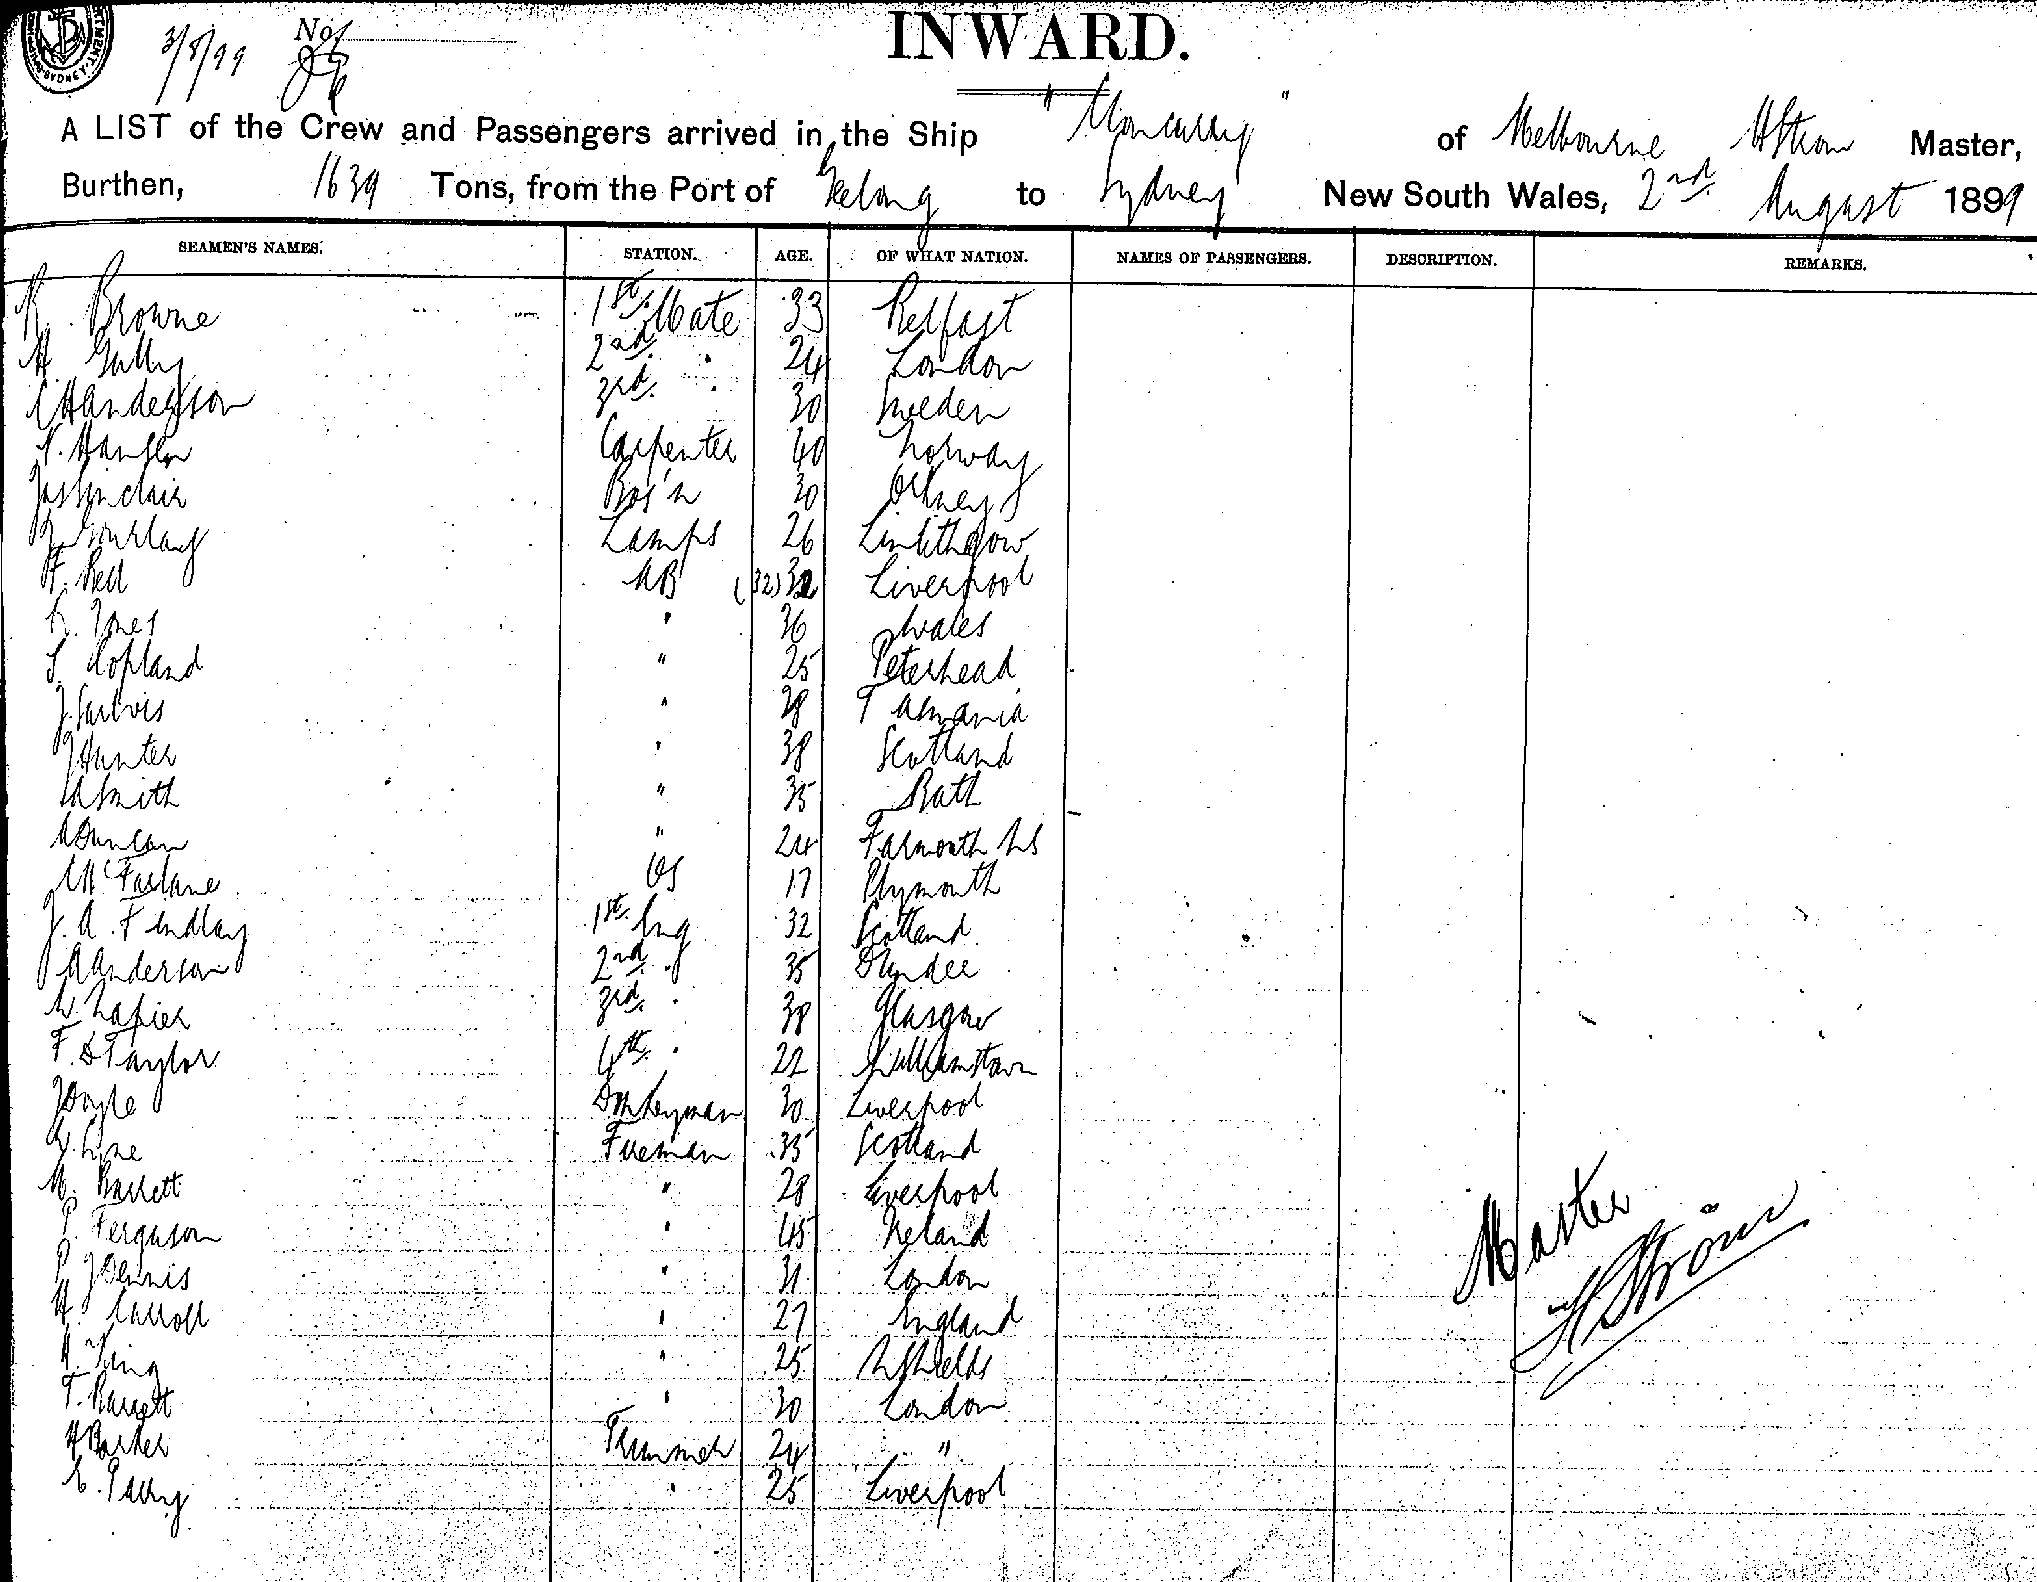 3/8/99 No.
INWARD.
A LIST of the Crew and Passengers arrived in the Ship " " of Melbourne HStrom Master,
Burthen, 1639 Tons, from the Port of Geelong to Sydney New South Wales, 2nd August 1899
SEAMEN'S NAMES. STATION. AGE. OF WHAT NATION. NAMES OF PASSENGERS. DESCRIPTION. REMARKS.
R. Browne 1st Mate 33 Belfast
H. Gully 2nd " 24 London
CHAnderson 3rd " 30 Sweden
N. Carpenter 40 Norway
Jas Sinclair Bos'n 30 Orkney
J Gourlay Lamps 26 Linlithgow
F. Bell AB (32) 32 Liverpool
R. Jones " 36 Wales
S. Copland " 25 Peterhead
J. Jarvis " 28 Tasmania
J Hunter " 38 Scotland
Smith " 35 Bath
ADuncan " 24 Falmouth NS
McFarlane OS 17 Plymouth
J. A. Findlay 1st Eng 32 Scotland
AAnderson 2nd " 35 Dundee
W. Napier 3rd " 38 Glasgow
F. D Taylor 4th " 22 Williamstown
J Doyle Donkeyman 30 Liverpool
Fireman 35 Scotland
M. Barrett " 28 Liverpool
P. Ferguson " 45 Ireland
P. J Dennis " 31 London
H. Carroll " 27 England
H. King " 25 N Shields
T. Barrett " 30 London
H Barker Trimmer 24 "
E. Parry " 25 Liverpool
Master
HStröm